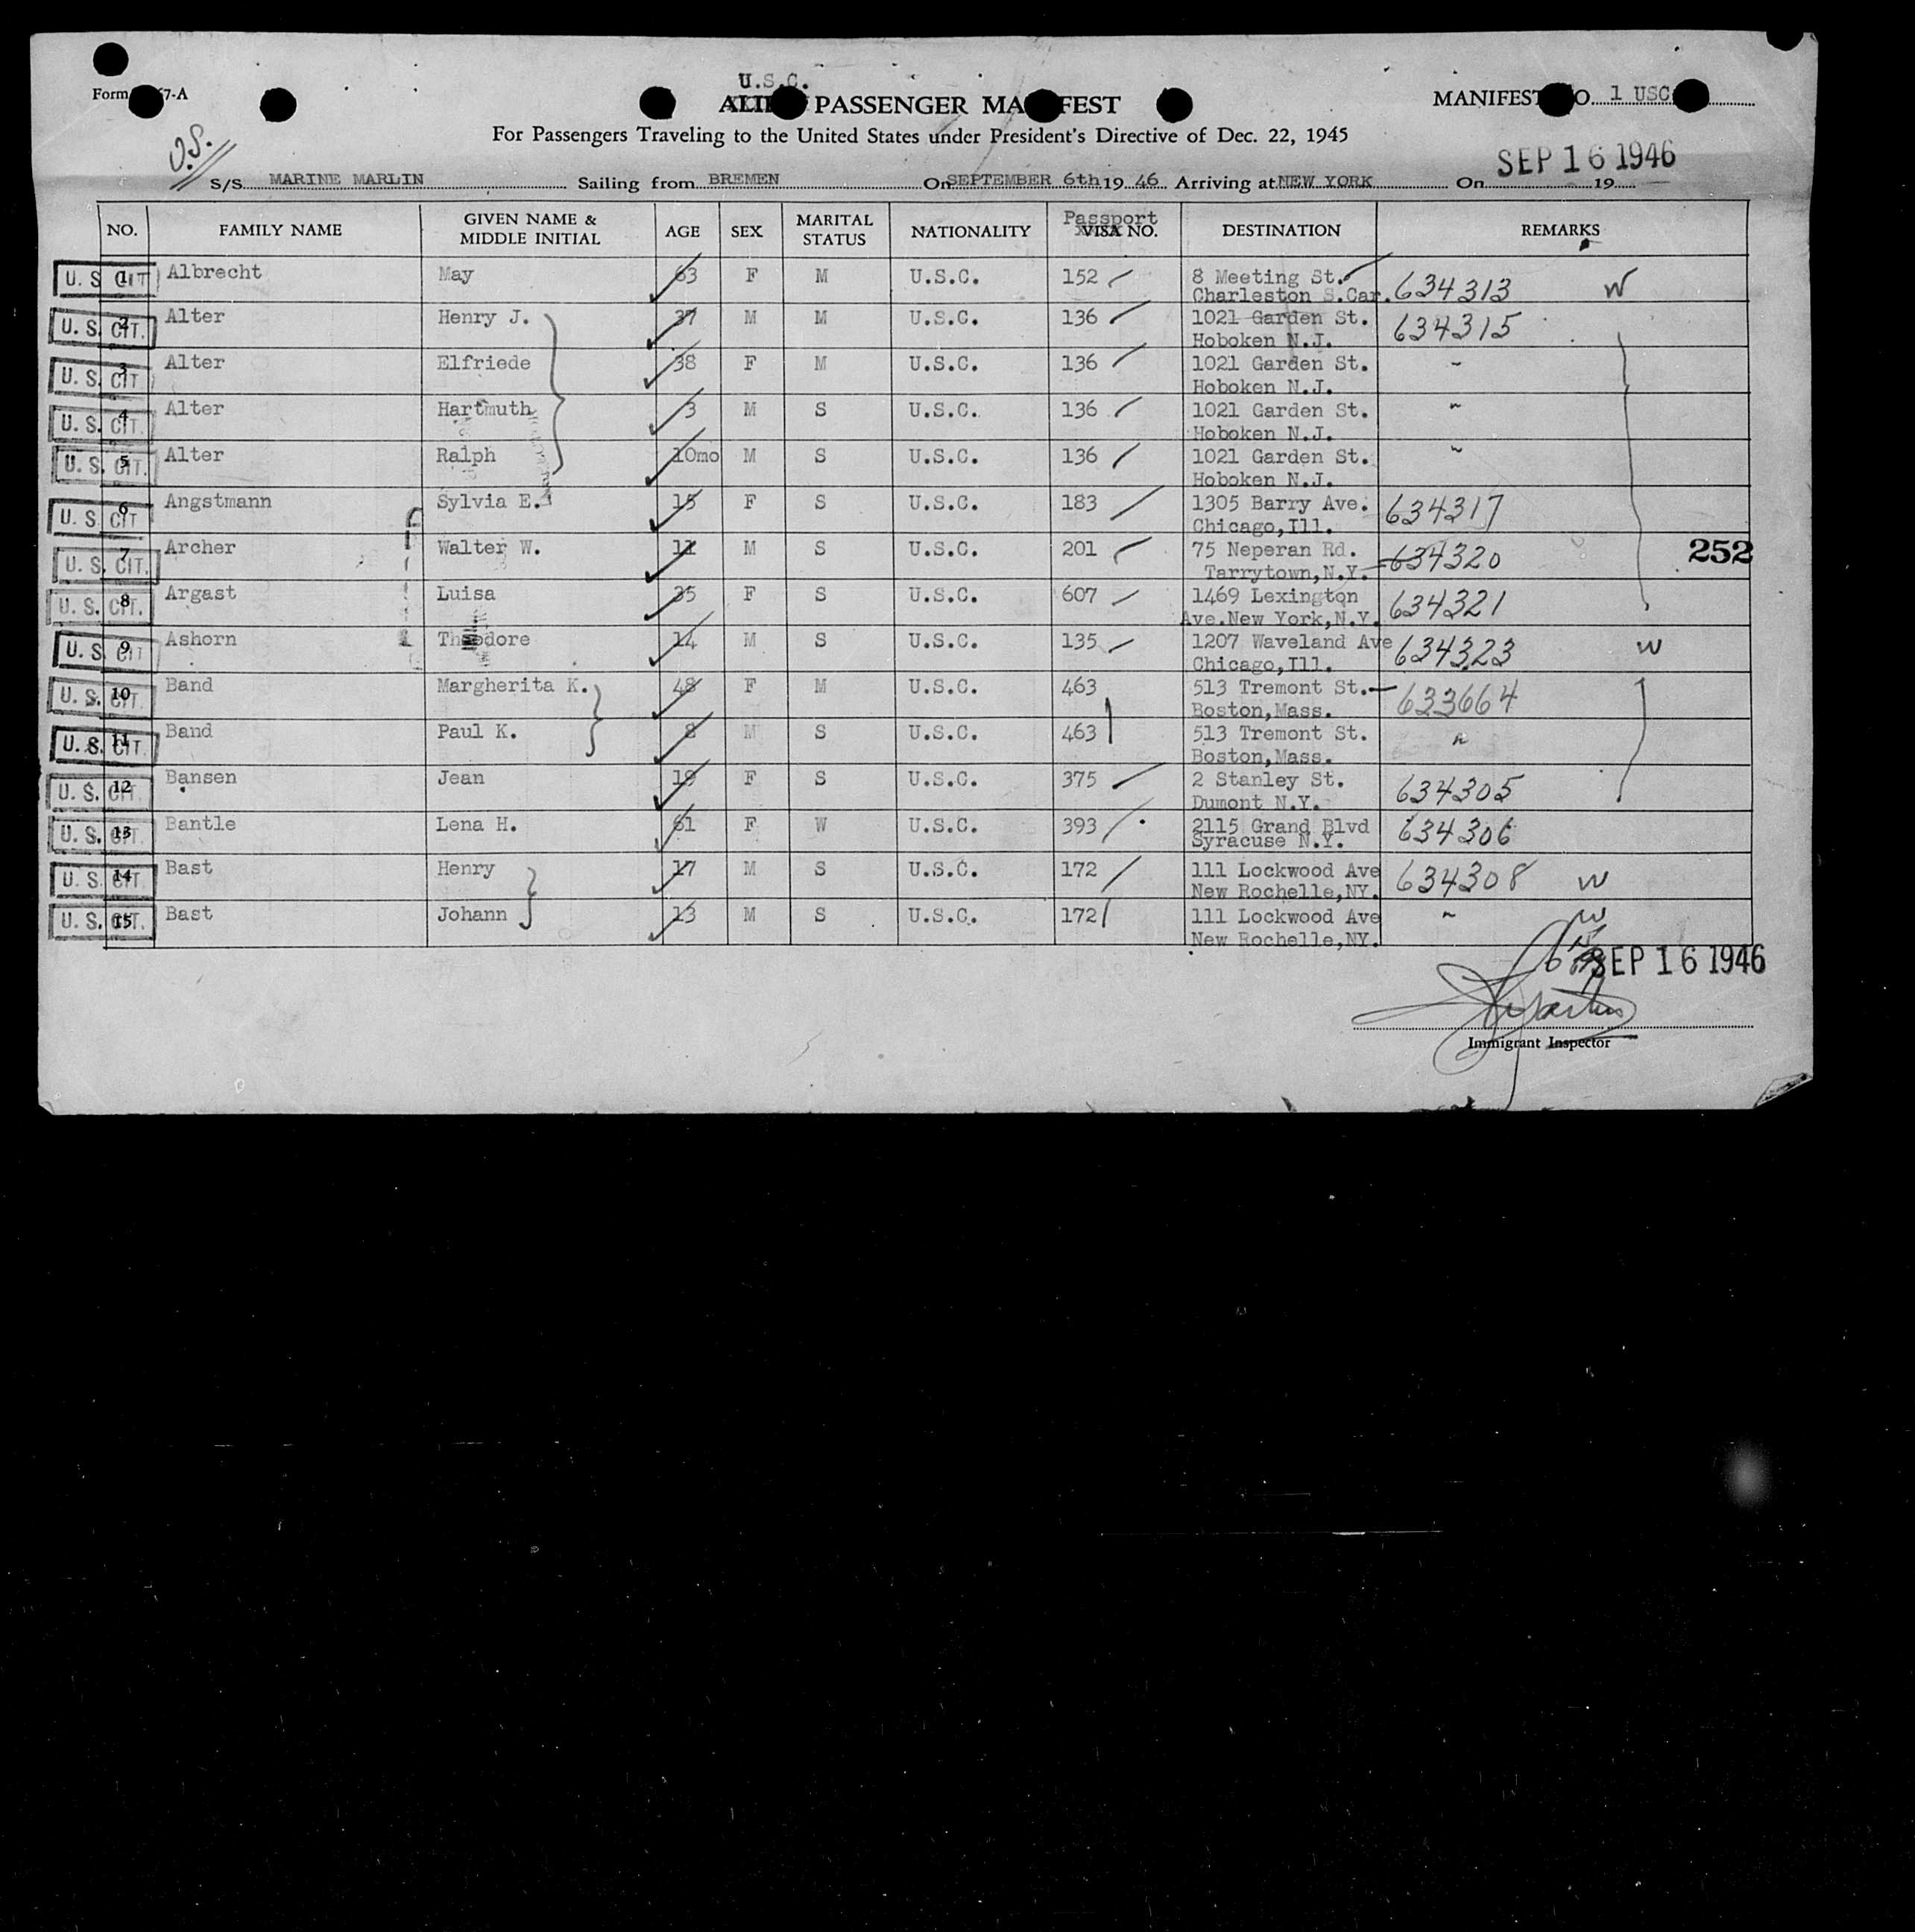 U.S.C.
Form 67-A
ALIEN PASSENGER MANIFEST
MANIFEST NO. 1 USC
For Passengers Traveling to the United States under President's Directive of Dec. 22, 1945
U.S.
SEP 16 1946
S/S MARINE MARLIN Sailing from BREMEN On SEPTEMBER 6th 19 46 Arriving at NEW YORK On 19
NO. FAMILY NAME GIVEN NAME & MIDDLE INITIAL AGE SEX MARITAL STATUS NATIONALITY Passport VISA NO. DESTINATION REMARKS
U. S. CIT. 1 Albrecht May 63 F M U.S.C. 152 8 Meeting St. 634313 W
Charleston S.Car.
U. S. CIT. 2 Alter Henry J. 37 M M U.S.C. 136 1021 Garden St. 634315
Hoboken N.J.
U. S. CIT 3 Alter Elfriede 38 F M U.S.C. 136 1021 Garden St. ~
Hoboken N.J.
U. S. CIT. 4 Alter Hartmuth 3 M S U.S.C. 136 1021 Garden St. ~
Hoboken N.J.
U. S. CIT. 5 Alter Ralph 10mo M S U.S.C. 136 1021 Garden St. ~
Hoboken N.J.
U. S. CIT 6 Angstmann Sylvia E. 15 F S U.S.C. 183 1305 Barry Ave. 634317
Chicago,Ill.
U. S. CIT. 7 Archer Walter W. 11 M S U.S.C. 201 75 Neperan Rd. 634320 252
Tarrytown,N.Y.
U. S. CIT. 8 Argast Luisa 35 F S U.S.C. 607 1469 Lexington 634321
Ave.New York,N.Y.
U. S. CIT 9 Ashorn Theodore 14 M S U.S.C. 135 1207 Waveland Ave 634323 W
Chicago,Ill.
U. S. CIT. 10 Band Margherita K. 48 F M U.S.C. 463 513 Tremont St. 633664
Boston,Mass.
U. S. CIT. 11 Band Paul K. 8 M S U.S.C. 463 513 Tremont St.
Boston,Mass.
U. S. CIT. 12 Bansen Jean 19 F S U.S.C. 375 2 Stanley St. 634305
Dumont N.Y.
U. S. CIT. 13 Bantle Lena H. 61 F W U.S.C. 393 2115 Grand Blvd 634306
Syracuse N.Y.
U. S. CIT. 14 Bast Henry 17 M S U.S.C. 172 111 Lockwood Ave 634308 W
New Rochelle,NY.
U. S. CIT. 15 Bast Johann 13 M S U.S.C. 172 111 Lockwood Ave ~ W
New Rochelle,NY.
SEP 16 1946
Immigrant Inspector